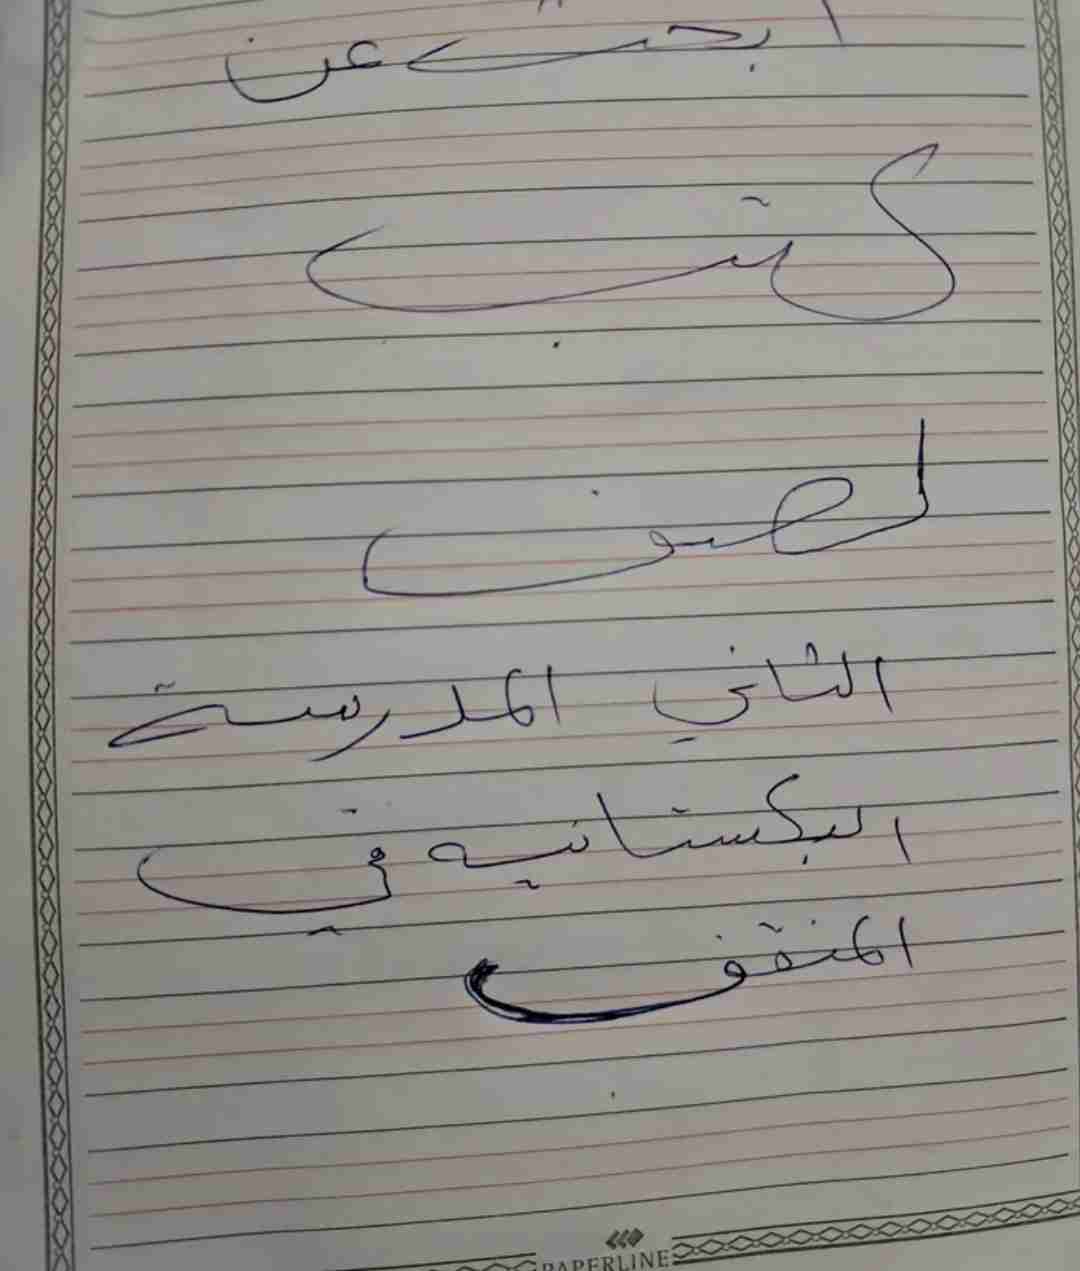 ابحث عن
كتب
لصف
الثاني المدرسة
البكستانيه في
المنقف
PAPERLINE